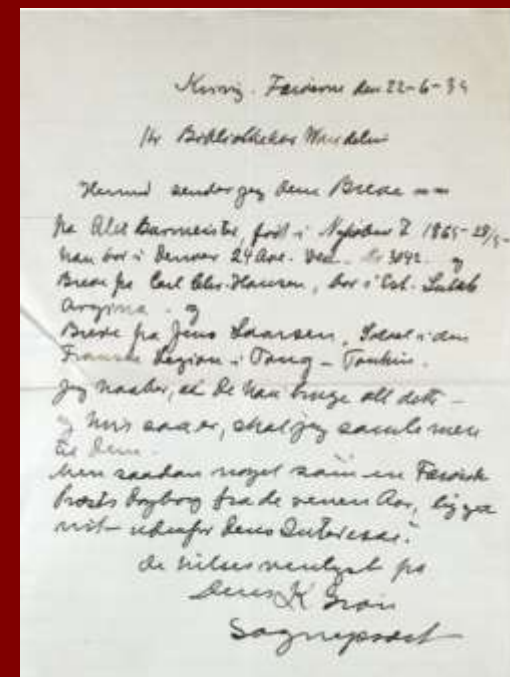 Færøerne den 22-6-34
Hr Bibliothekar Wandelin
Hermed sender jeg Dem Breve
fra Alex Barmeister, født i Nykøbing 1865
han bor i Denver 24 Ave. 3042 og
Breve fra Carl Chr. Hansen, bor i Est.
og
Breve fra Jens Laursen, Soldat i den
Franske Legion i Tong-Tonkin.
Jeg haaber, at De kan bruge alt dette -
og hvis saa er, skal jeg samle mere
til Dem.
Men saadan noget som en Færøsk
Provsts Dagbog fra de Aar, ligger
nok udenfor Deres Interesse?
De hilses venligst fra
Deres K
Sogneprovst